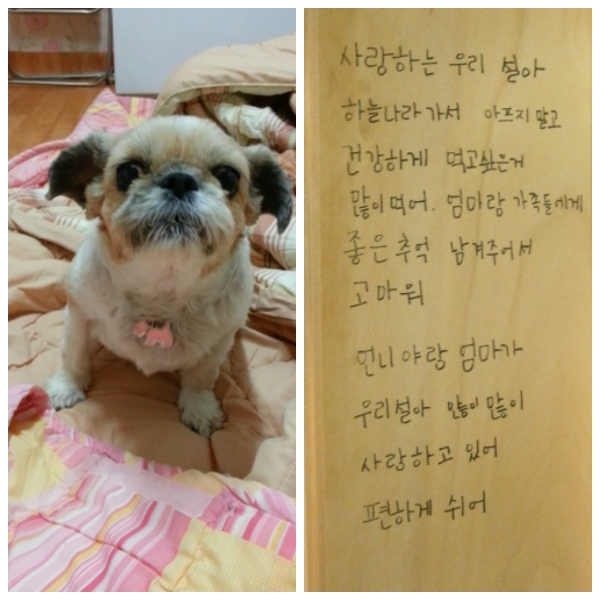 사랑하는 우리 설아
하늘나라 가서 아프지 말고
건강하게 먹고싶은거
많이 먹어. 엄마랑 가족들에게
좋은 추억 남겨주어서
고마워
언니야랑 엄마가
우리설아 많이 많이
사랑하고 있어
편하게 쉬어